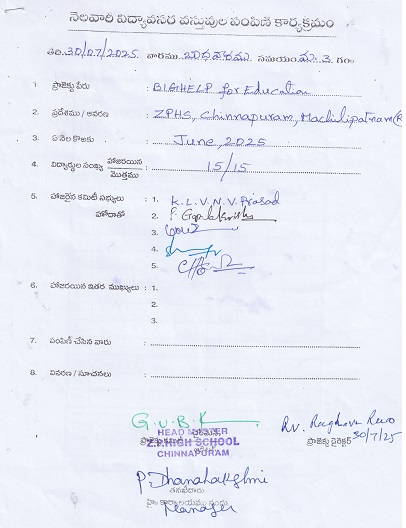 నెలవారీ విద్యావసర వస్తువుల పంపిణీ కార్యక్రమం
తేది.30/07/2025. వారము బుధవారము సమయం మ. 3. గం
1. ప్రాజెక్టు పేరు : BIGHELP for Education
2. ప్రదేశము / ఆవరణ : ZPHS, Chinnapuram, Machilipatnam(R
3. ఏ నెల కొఱకు : June, 2025
4. విద్యార్థుల సంఖ్య హాజరయిన / మొత్తము : 15/15
5. హాజరైన కమిటీ సభ్యులు : 1. K.L.V.N.V. Prasad
హోదాతో 2. P. Gopalakrishna
3.
4.
5.
6. హాజరయిన ఇతర ముఖ్యులు : 1.
2.
3.
7. పంపిణీ చేసిన వారు :
8. వివరణ / సూచనలు :
G.V.B.K
HEAD MASTER
Z.P.HIGH SCHOOL
CHINNAPURAM
RV. Raghava Rao
ప్రాజెక్టు డైరెక్టర్ 30/7/25
P. Dhanalakshmi
Manager